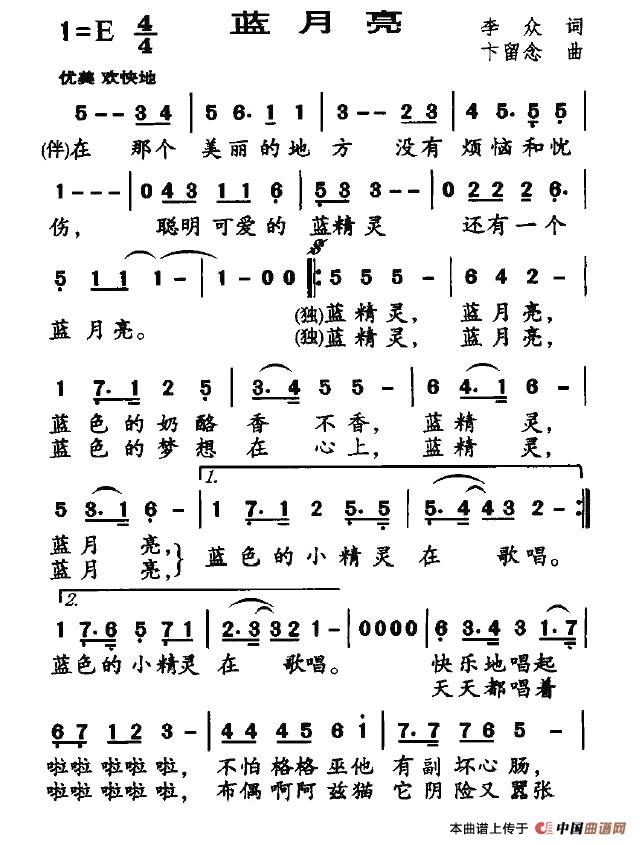 1=E 4/4 蓝月亮 李众 词
卞留念 曲
优美 欢快地
5 - - 3 4 | 5 6· 1 1 | 3 - - 2 3 | 4 5· 5 5 |
(伴)在 那个 美丽的地 方 没有 烦恼和忧
1 - - - | 0 4 3 1 1 6 | 5 3 3 - - | 0 2 2 2 6· |
伤, 聪明可爱的 蓝精灵 还有一个
5 1 1 1 - | 1 - 0 0 𝄋 |: 5 5 5 5 - | 6 4 2 - |
蓝月亮。 (独)蓝精灵, 蓝月亮,
(独)蓝精灵, 蓝月亮,
1 7· 1 2 5 | 3· 4 5 5 - | 6 4· 1 6 - |
蓝色的奶酪 香 不香, 蓝精 灵,
蓝色的梦想 在 心上, 蓝精 灵,
1.
5 3· 1 6 - | 1 7· 1 2 5· 5 | 5· 4 4 3 2 - :|
蓝月 亮, 蓝色的小精灵在 歌唱。
蓝月 亮,
2.
1 7· 6 5 7 1 | 2· 3 3 3 2 1 - | 0 0 0 0 | 6 3· 4 3 1· 7 |
蓝色的小精灵 在 歌唱。 快乐地唱起
天天都唱着
6 7 1 2 3 - | 4 4 4 5 6 1 | 7· 7 7 6 5 - |
啦啦啦啦啦, 不怕格格巫他 有副坏心肠,
啦啦啦啦啦, 布偶啊阿兹猫 它阴险又嚣张
本曲谱上传于 中国曲谱网